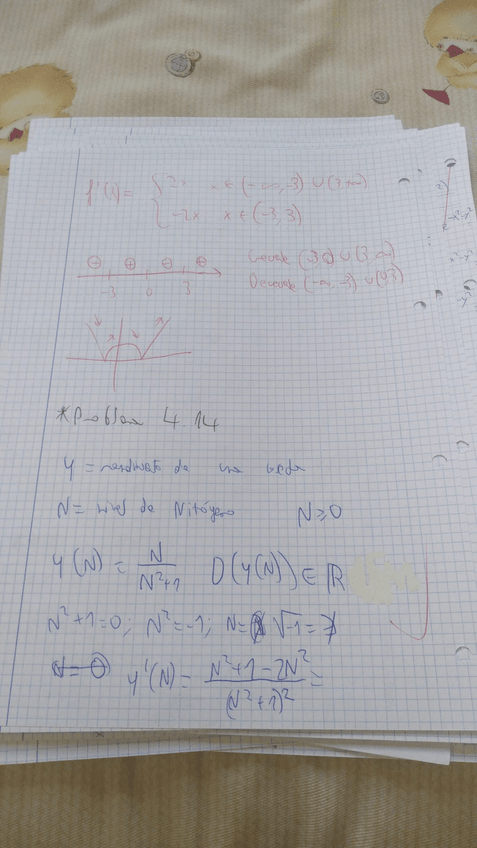 f'(x) = { 2x x ∈ (-∞,-3) ∪ (3,+∞)
-2x x ∈ (-3,3)
⊖ ⊕ ⊖ ⊕
-3 0 3
Crece (-3,0) ∪ (3,∞)
Decrece (-∞,-3) ∪ (0,3)
*Problema 4.14
Y = rendimiento de una
N = nivel de Nitógeno N ≥ 0
Y(N) = N/(N²+1) D(Y(N)) ∈ ℝ
N²+1=0; N²=-1; N= √-1 = ∄
N = 0 Y'(N) = (N²+1-2N²)/(N²+1)² =